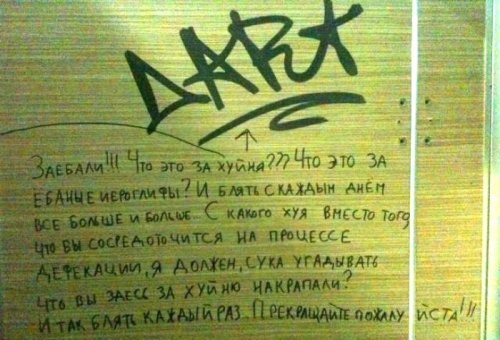 DART
ЗАЕБАЛИ!!! ЧТО ЭТО ЗА ХУЙНА??? ЧТО ЭТО ЗА
ЕБАНЫЕ ИЕРОГЛИФЫ? И БЛЯТЬ С КАЖДЫМ ДНЁМ
ВСЕ БОЛЬШЕ И БОЛЬШЕ. С КАКОГО ХУЯ ВМЕСТО ТОГО
ЧТО ВЫ СОСРЕДОТОЧИТСЯ НА ПРОЦЕССЕ
ДЕФЕКАЦИИ, Я ДОЛЖЕН, СУКА УГАДЫВАТЬ
ЧТО ВЫ ЗДЕСЬ ЗА ХУЙНЮ НАКРАПАЛИ?
И ТАК БЛЯТЬ КАЖДЫЙ РАЗ. ПРЕКРАЩАЙТЕ ПОЖАЛУЙСТА!!!